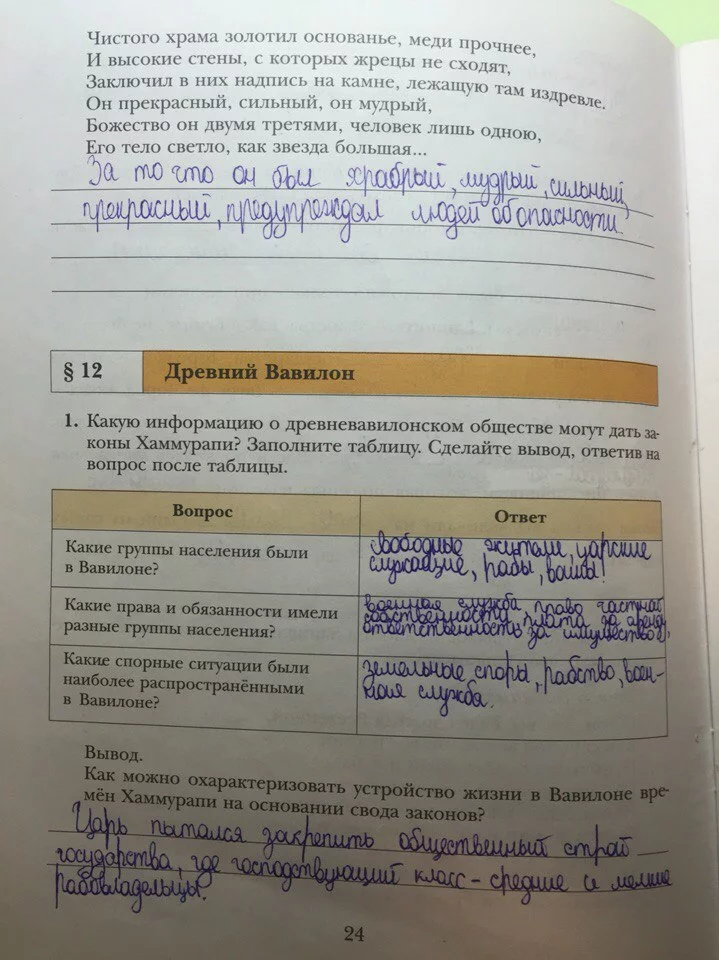 Чистого храма золотил основанье, меди прочнее,
И высокие стены, с которых жрецы не сходят,
Заключил в них надпись на камне, лежащую там издревле.
Он прекрасный, сильный, он мудрый,
Божество он двумя третями, человек лишь одною,
Его тело светло, как звезда большая...
За то что он был храбрый, мудрый, сильный,
прекрасный, предупреждал людей об опасности.
§ 12 Древний Вавилон
1. Какую информацию о древневавилонском обществе могут дать за-
коны Хаммурапи? Заполните таблицу. Сделайте вывод, ответив на
вопрос после таблицы.
Вопрос Ответ
Какие группы населения были
в Вавилоне?
свободные жители, царские
служащие, рабы, воины!
Какие права и обязанности имели
разные группы населения?
военная служба, право частной
собственности, плата за аренду,
ответственность за имущество.
Какие спорные ситуации были
наиболее распространёнными
в Вавилоне?
земельные споры, рабство, воен-
ная служба.
Вывод.
Как можно охарактеризовать устройство жизни в Вавилоне вре-
мён Хаммурапи на основании свода законов?
Царь пытался закрепить общественный строй
государства, где господствующий класс - средние и мелкие
рабовладельцы.
24